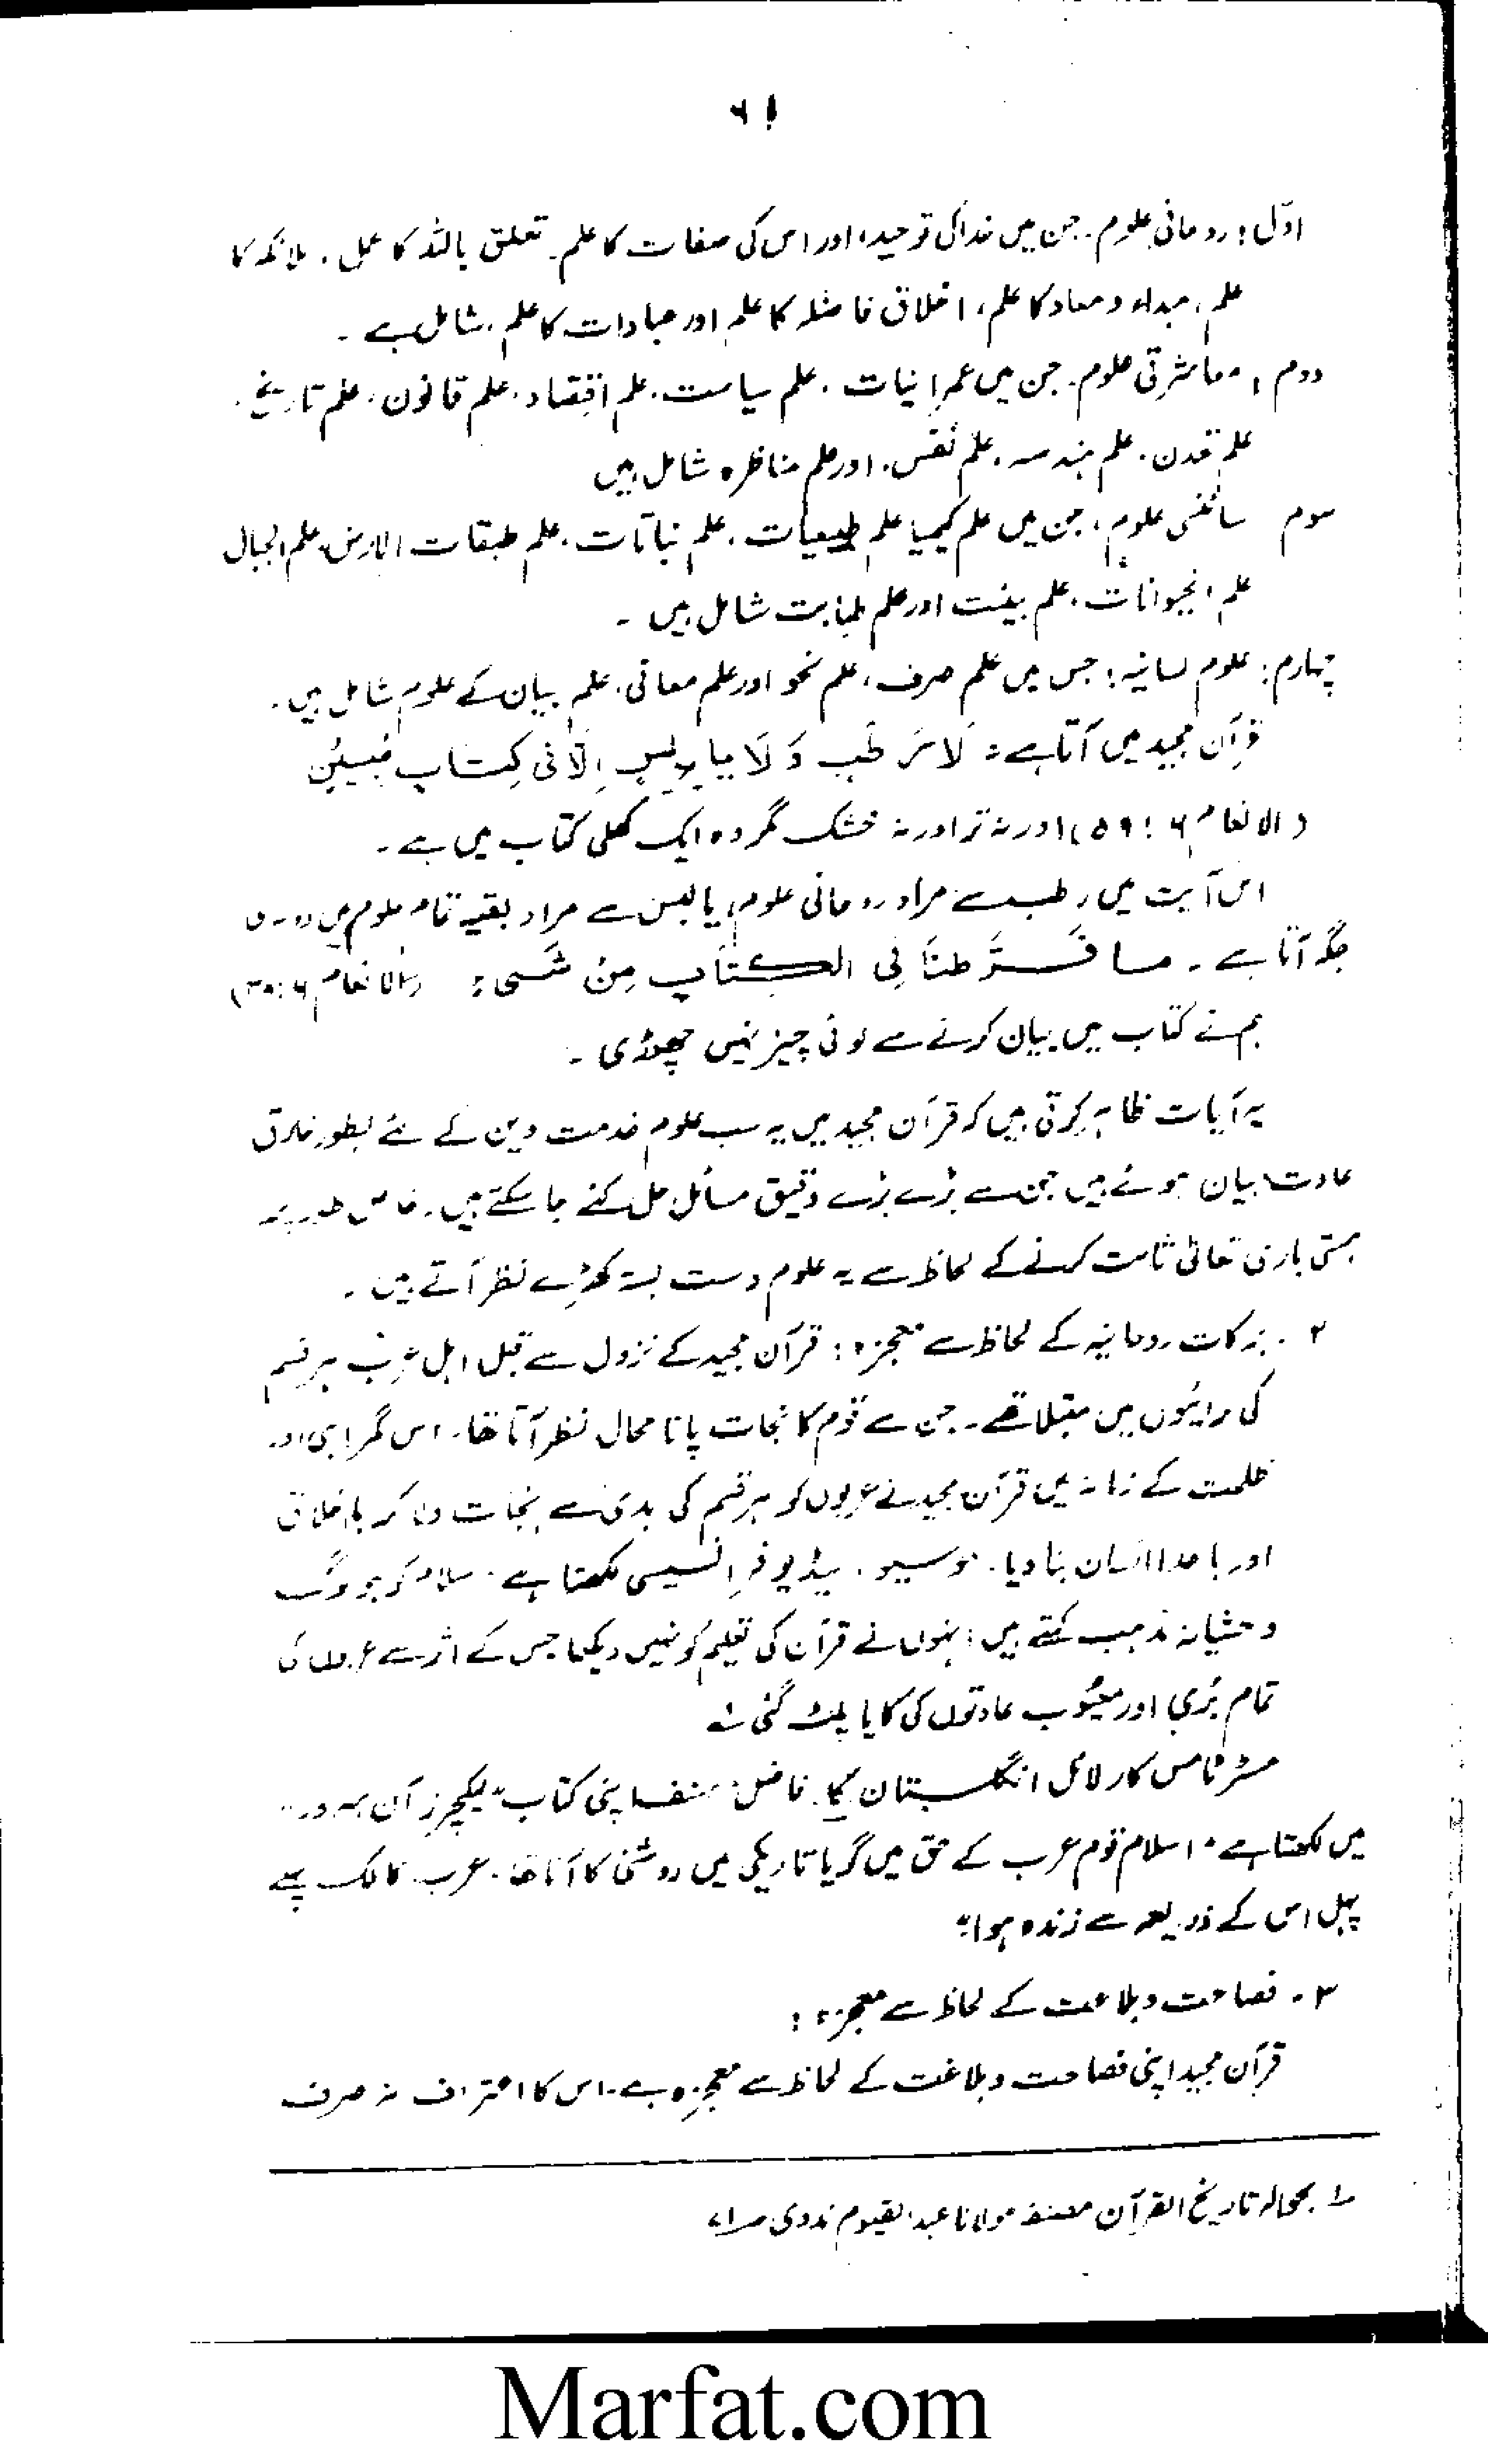 ۶۱
اوّل: روحانی علوم۔ جن میں خدا کی توحید، اور اس کی صفات کا علم۔ تعلق باللہ کا عمل۔ ملائکہ کا
علم، مبداء و معاد کا علم، اخلاق فاضلہ کا علم اور عبادات کا علم، شامل ہے۔
دوم: معاشرتی علوم۔ جن میں عمرانیات، علم سیاست، علم اقتصاد، علم قانون، علم تاریخ،
علم تمدن، علم ہندسہ، علم نفس، اور علم مناظرہ شامل ہیں
سوم سائنسی علوم، جن میں علم کیمیا علم طبیعیات، علم نباتات، علم طبقات الارض، علم الجبال
علم الحیوانات، علم ہیئت اور علم طبابت شامل ہیں۔
چہارم: علوم لسانیہ: جس میں علم صرف، علم نحو اور علم معانی، علم بیان کے علوم شامل ہیں۔
قرآن مجید میں آتا ہے: لَا رَطْبٍ وَّلَا یَابِسٍ اِلَّا فِی کِتَابٍ مُّبِیْنٍ
(الانعام ۶:۵۹) اور نہ تر اور نہ خشک مگر وہ ایک کھلی کتاب میں ہے۔
اس آیت میں رطب سے مراد روحانی علوم، یابس سے مراد بقیہ تمام علوم ہیں دوسری
جگہ آتا ہے۔ مَا فَرَّطْنَا فِی الْکِتَابِ مِنْ شَیْءٍ (الانعام ۶:۳۸)
ہم نے کتاب میں بیان کرنے سے کوئی چیز نہیں چھوڑی۔
یہ آیات ظاہر کرتی ہیں کہ قرآن مجید میں یہ سب علوم خدمت دین کے لئے بطور خارق
عادت بیان ہوئے ہیں جن سے بڑے بڑے دقیق مسائل حل کئے جا سکتے ہیں۔ خاص طور پر
ہستی باری تعالیٰ ثابت کرنے کے لحاظ سے یہ علوم دست بستہ کھڑے نظر آتے ہیں۔
۲۔ برکات روحانیہ کے لحاظ سے معجزہ: قرآن مجید کے نزول سے قبل اہل عرب ہر قسم
کی برائیوں میں مبتلا تھے۔ جن سے قوم کا نجات پانا محال نظر آتا تھا۔ اس گمراہی اور
ظلمت کے زمانہ میں قرآن مجید نے عربوں کو ہر قسم کی بدی سے نجات دلا کر بااخلاق
اور باخدا انسان بنا دیا۔ موسیو۔ فرانسیسی لکھتا ہے۔ اسلام کو جو لوگ
وحشیانہ مذہب کہتے ہیں انہوں نے قرآن کی تعلیم کو نہیں دیکھا جس کے اثر سے عربوں کی
تمام بُری اور معیوب عادتوں کی کایا پلٹ گئی ؎
مسٹر ٹامس کارلائل انگلستان کا فاضل مصنف اپنی کتاب "لیکچرز آن
میں لکھتا ہے "اسلام قوم عرب کے حق میں گویا تاریکی میں روشنی کا آنا تھا۔ عرب کا ملک پہلے
پہل اس کے ذریعہ سے زندہ ہوا"
۳۔ فصاحت و بلاغت کے لحاظ سے معجزہ:
قرآن مجید اپنی فصاحت و بلاغت کے لحاظ سے معجزہ ہے۔ اس کا اعتراف نہ صرف
؎۱ بحوالہ تاریخ القرآن مصنف مولانا عبدالقیوم ندوی
Marfat.com